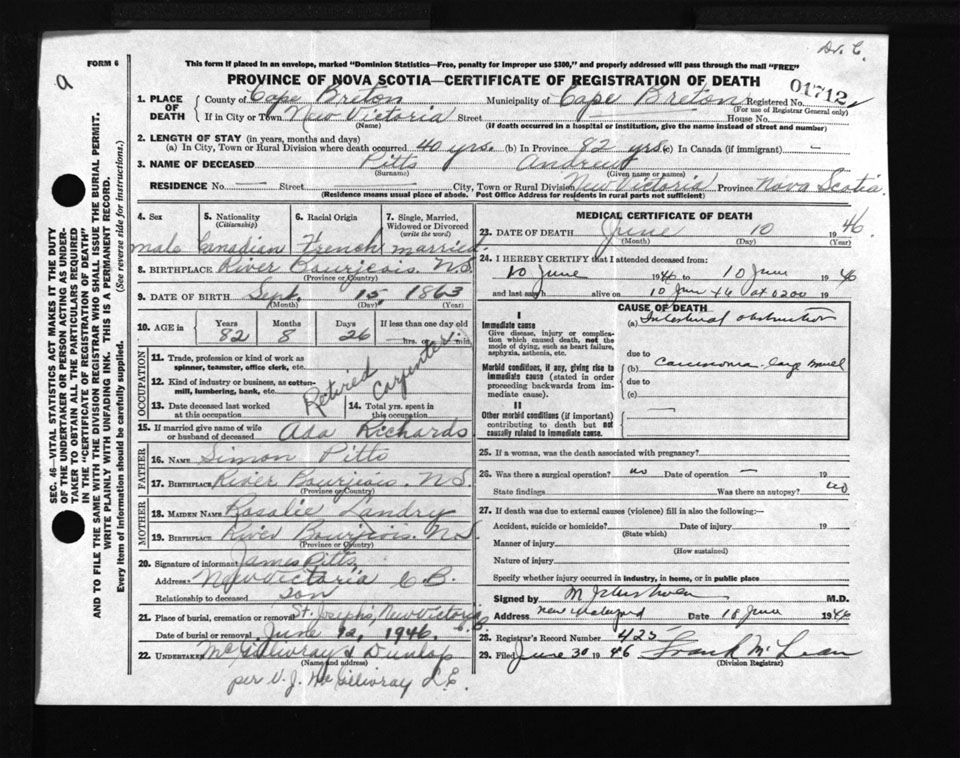 Dr. C.
FORM 6
a
This form if placed in an envelope, marked "Dominion Statistics—Free, penalty for improper use $300," and properly addressed will pass through the mail "FREE"
PROVINCE OF NOVA SCOTIA—CERTIFICATE OF REGISTRATION OF DEATH
01712
1. PLACE OF DEATH { County of Cape Briton Municipality of Cape Breton Registered No.
(For use of Registrar General only)
If in City or Town New Victoria Street House No.
(Name) (If death occurred in a hospital or institution, give the name instead of street and number)
2. LENGTH OF STAY (in years, months and days)
(a) In City, Town or Rural Division where death occurred 40 yrs. (b) In Province 82 yrs. (c) In Canada (if immigrant) —
3. NAME OF DECEASED Pitts Andrew
(Surname) (Given name or names)
RESIDENCE No. — Street — City, Town or Rural Division New Victoria Province Nova Scotia
(Residence means usual place of abode. Post Office Address for residents in rural parts not sufficient)
4. Sex 5. Nationality (Citizenship) 6. Racial Origin 7. Single, Married, Widowed or Divorced (write the word)
male Canadian French married.
8. BIRTHPLACE River Bourjeois. N.S.
(Province or Country)
9. DATE OF BIRTH Sept. 15, 1863
(Month) (Day) (Year)
10. AGE in Years Months Days If less than one day old
82 8 26 hrs. or min.
OCCUPATION
11. Trade, profession or kind of work as spinner, teamster, office clerk, etc.
12. Kind of industry or business, as cotton-mill, lumbering, bank, etc.
Retired Carpenter
13. Date deceased last worked at this occupation
14. Total yrs. spent in this occupation
15. If married give name of wife or husband of deceased Ada Richards
FATHER
16. NAME Simon Pitts
17. BIRTHPLACE River Bourjiois. N.S.
(Province or Country)
MOTHER
18. MAIDEN NAME Rosalie Landry
19. BIRTHPLACE River Bourjois. N.S.
(Province or Country)
20. Signature of informant James Pitts
Address New Victoria C.B.
Relationship to deceased son
21. Place of burial, cremation or removal St. Josephs, New Victoria
Date of burial or removal June 12, 1946.
22. UNDERTAKER McGillivray & Dunlop
(Name and address)
per V. J. McGillivray L.E.
MEDICAL CERTIFICATE OF DEATH
23. DATE OF DEATH June 10 1946.
(Month) (Day) (Year)
24. I HEREBY CERTIFY that I attended deceased from:
10 June 1946 to 10 June 1946
and last saw h alive on 10 June 46 at 0200 19
CAUSE OF DEATH
I
Immediate cause
Give disease, injury or complication which caused death, not the mode of dying, such as heart failure, asphyxia, asthenia, etc.
(a) Intestinal obstruction
due to
Morbid conditions, if any, giving rise to immediate cause (stated in order proceeding backwards from immediate cause).
(b) Carcinoma - Large Bowel
due to
(c)
II
Other morbid conditions (if important) contributing to death but not causally related to immediate cause.
25. If a woman, was the death associated with pregnancy?
26. Was there a surgical operation? no Date of operation — 19
State findings Was there an autopsy? no
27. If death was due to external causes (violence) fill in also the following:—
Accident, suicide or homicide? Date of injury 19
(State which)
Manner of injury
(How sustained)
Nature of injury
Specify whether injury occurred in industry, in home, or in public place
Signed by M.D.
Address New Waterford Date 18 June 1946
28. Registrar's Record Number 425
29. Filed June 30 1946 Frank McLean
(Division Registrar)
SEC. 46—VITAL STATISTICS ACT MAKES IT THE DUTY
OF THE UNDERTAKER OR PERSON ACTING AS UNDER-
TAKER TO OBTAIN ALL THE PARTICULARS REQUIRED
IN THE "CERTIFICATE OF REGISTRATION OF DEATH"
AND TO FILE THE SAME WITH THE DIVISION REGISTRAR WHO SHALL ISSUE THE BURIAL PERMIT.
WRITE PLAINLY WITH UNFADING INK. THIS IS A PERMANENT RECORD.
Every item of information should be carefully supplied. (See reverse side for instructions.)